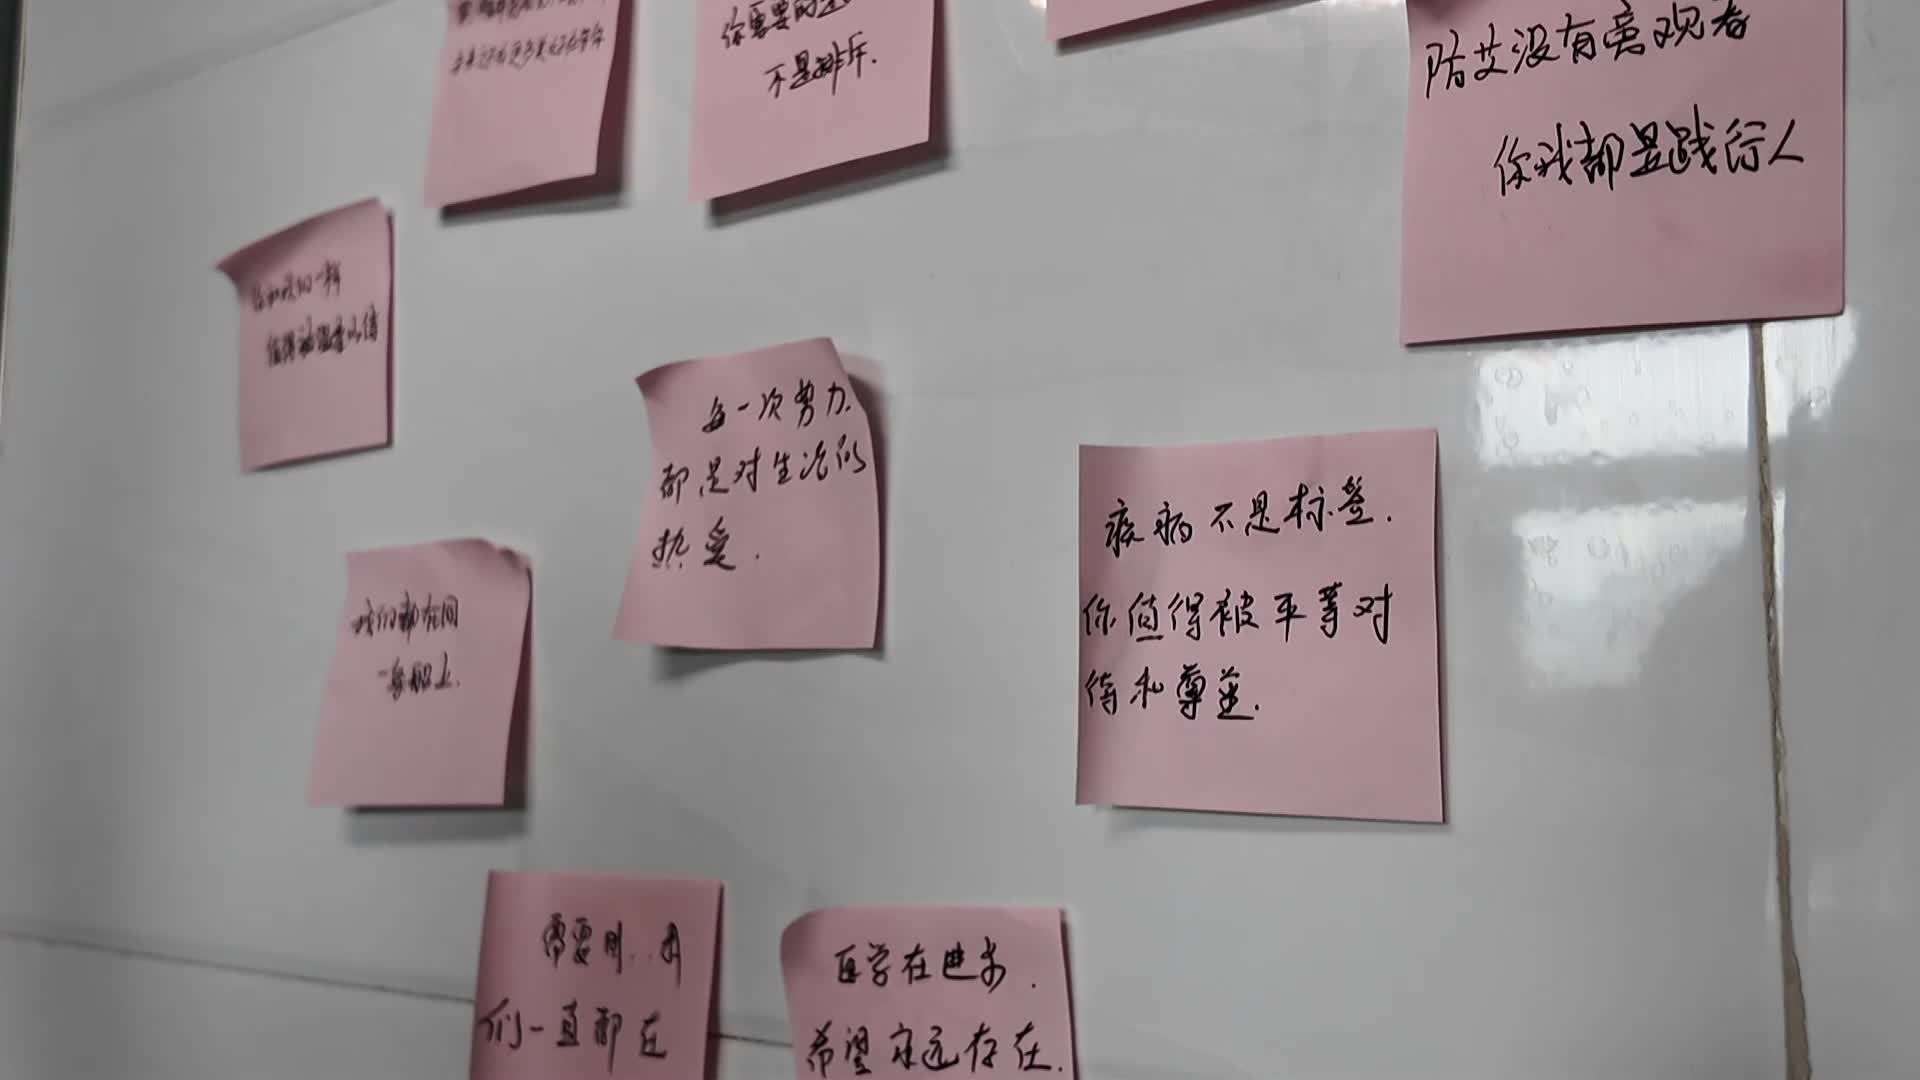 你需要的是
不是排斥.
防艾没有旁观者
你我都是践行人
你和我们一样
值得被温柔以待
每一次努力.
都是对生活的
热爱.
疾病不是标签.
你值得被平等对
待和尊重.
我们都在同
一条船上.
需要时..我
们一直都在
医学在进步.
希望永远存在.